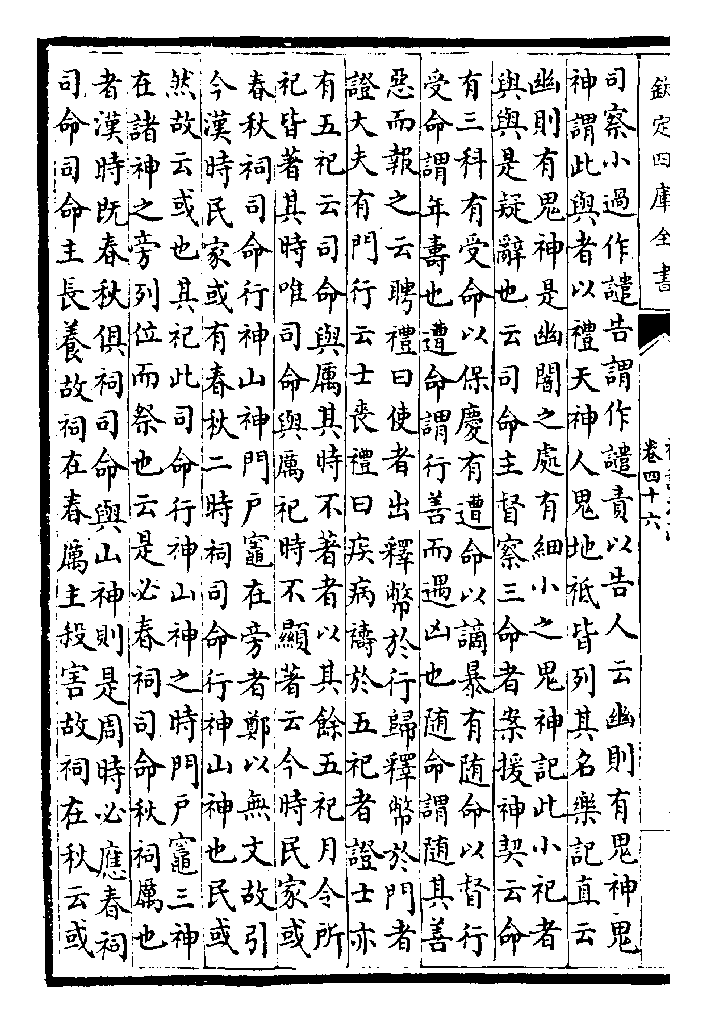 欽定四庫全書
卷四十六
司察小過作譴告謂作譴責以告人云幽則有鬼神鬼
神謂此與者以禮天神人鬼地祗皆列其名樂記直云
幽則有鬼神是幽闇之處有細小之鬼神記此小祀者
與與是疑辭也云司命主督察三命者案援神契云命
有三科有受命以保慶有遭命以謫暴有随命以督行
受命謂年壽也遭命謂行善而遇凶也随命謂随其善
惡而報之云聘禮曰使者出釋幣於行歸釋幣於門者
證大夫有門行云士喪禮曰疾病禱於五祀者證士亦
有五祀云司命與厲其時不著者以其餘五祀月令所
祀皆著其時唯司命與厲祀時不顯著云今時民家或
春秋祠司命行神山神門戸竈在旁者鄭以無文故引
今漢時民家或有春秋二時祠司命行神山神也民或
然故云或也其祀此司命行神山神之時門戸竈三神
在諸神之旁列位而祭也云是必春祠司命秋祠厲也
者漢時既春秋俱祠司命與山神則是周時必應春祠
司命司命主長養故祠在春厲主殺害故祠在秋云或